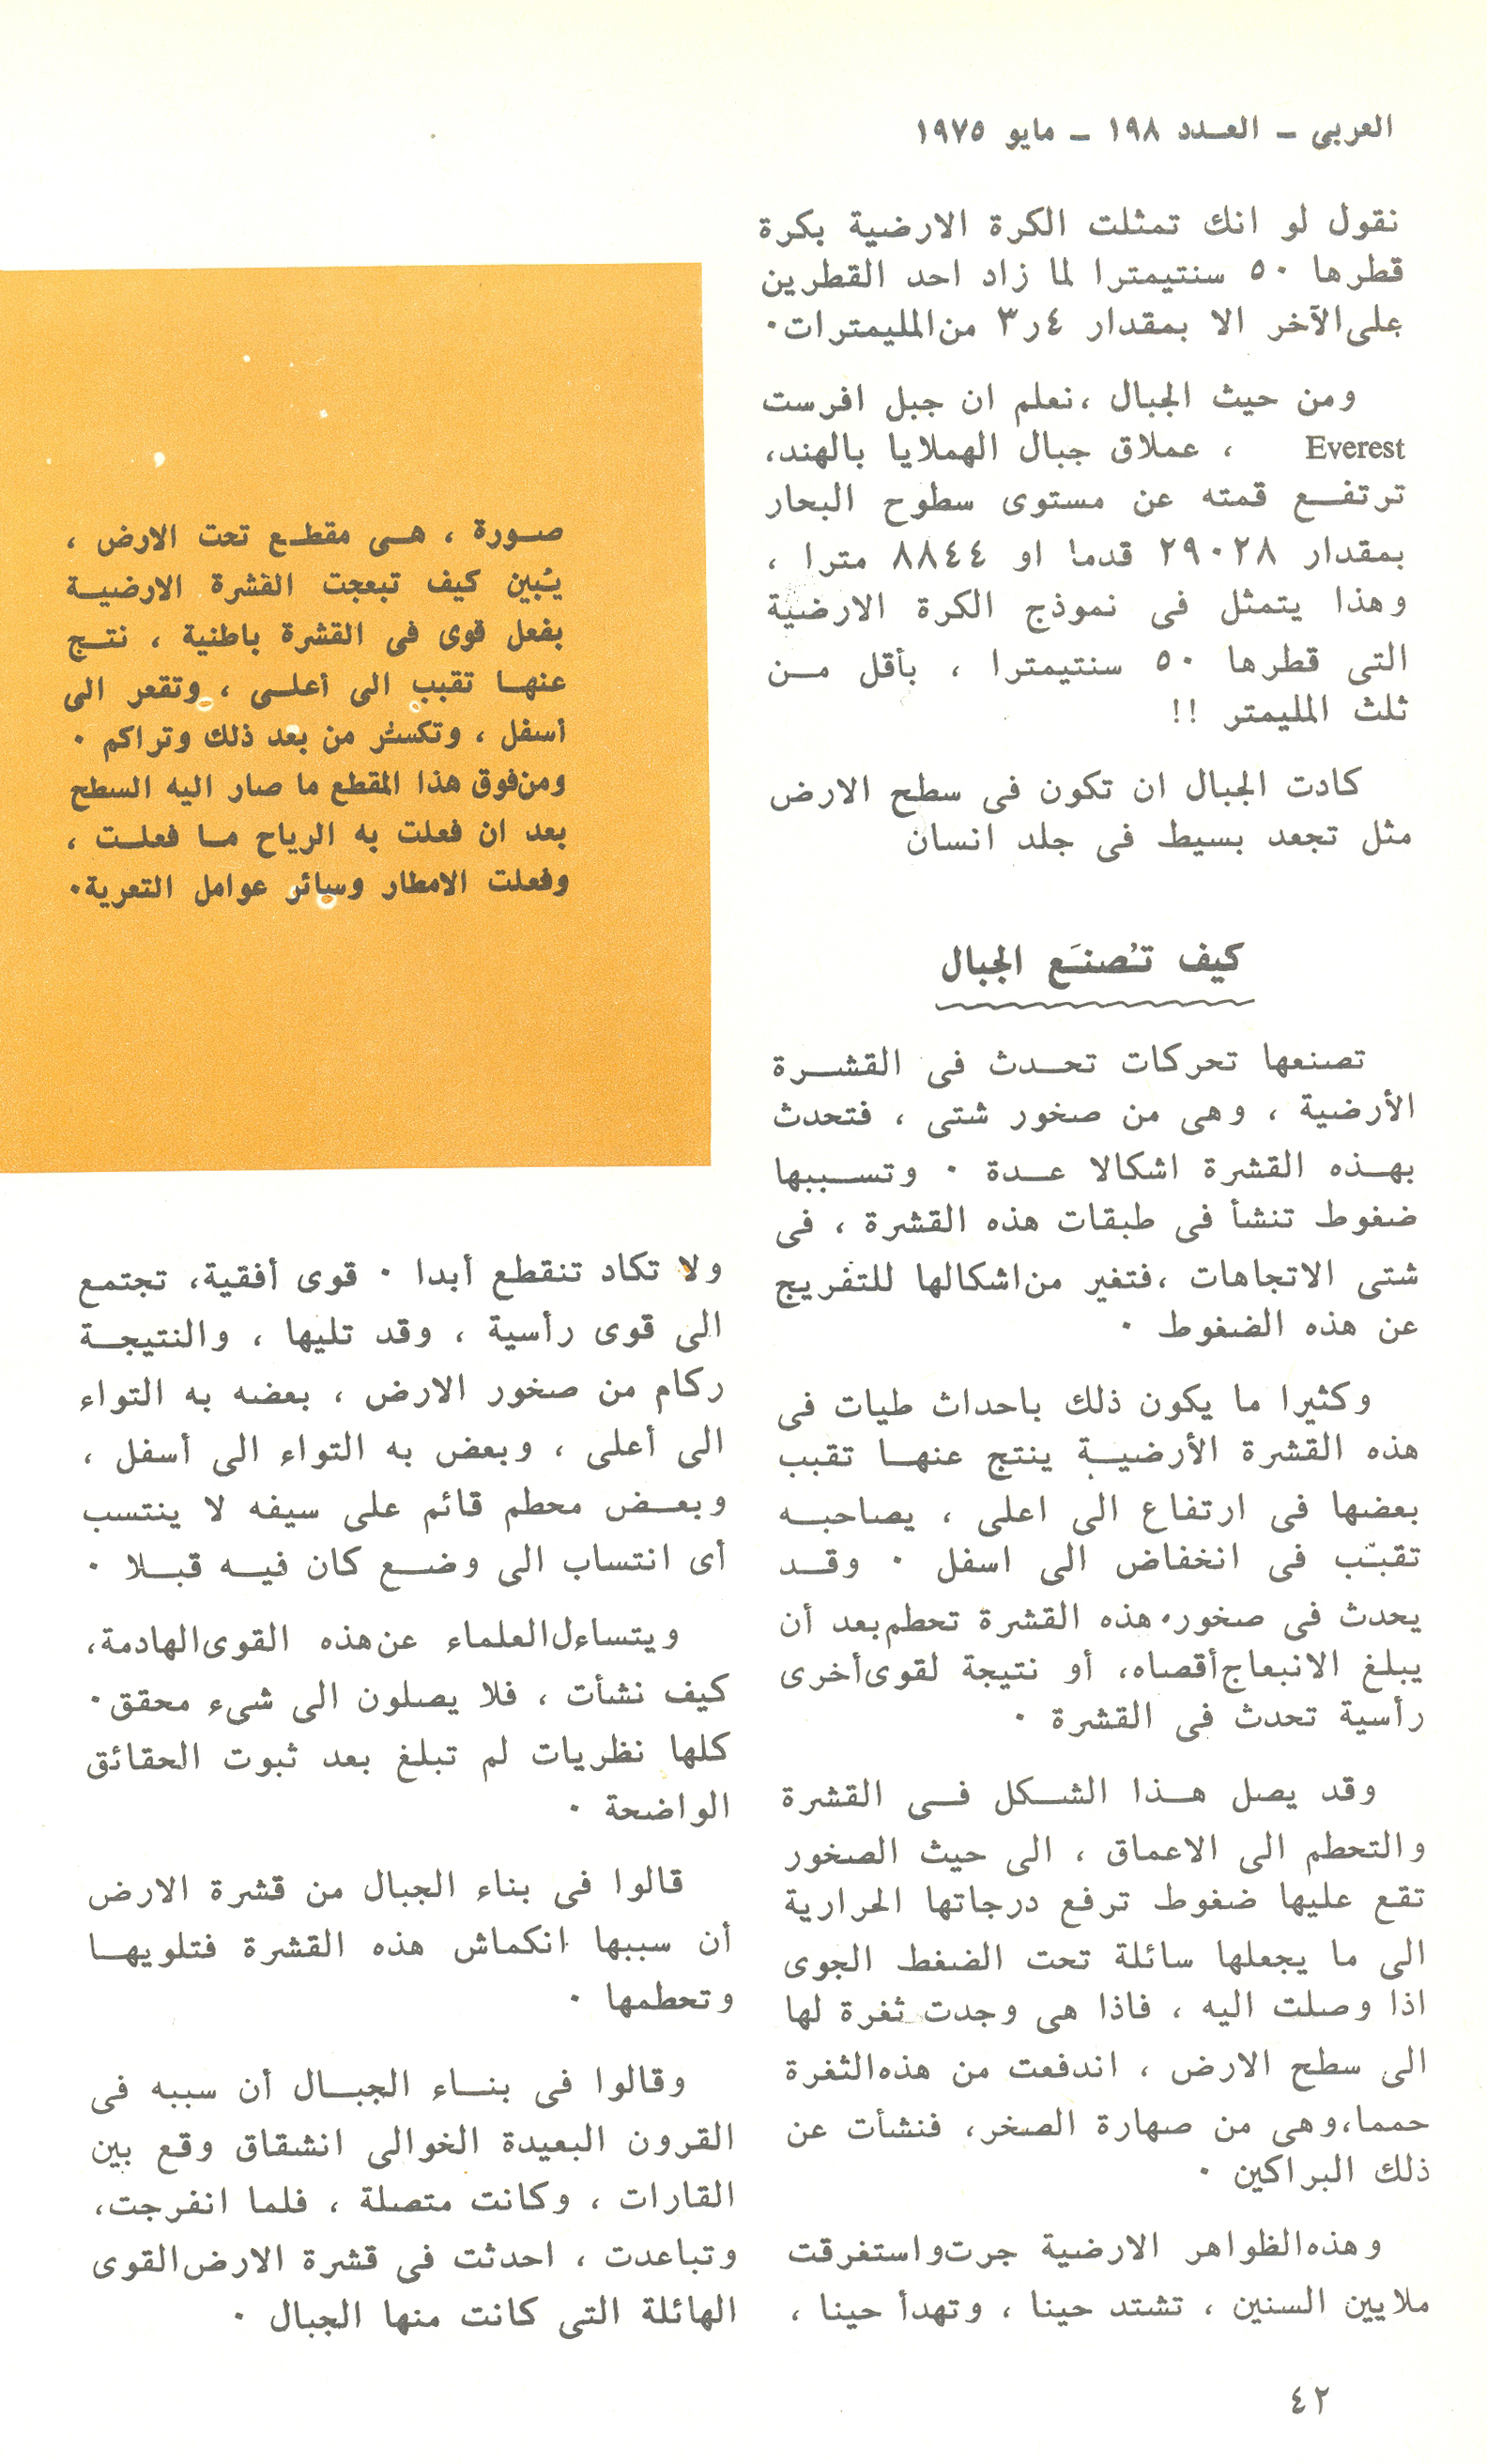 العربى ـ العـدد ١٩٨ ـ مايو ١٩٧٥
نقول لو انك تمثلت الكرة الارضية بكرة
قطرها ٥٠ سنتيمترا لما زاد احد القطرين
على الآخر الا بمقدار ٤ر٣ من المليمترات ٠
ومن حيث الجبال ، نعلم ان جبل افرست
Everest ، عملاق جبال الهملايا بالهند،
ترتفـع قمته عن مستوى سطوح البحار
بمقدار ٢٩٠٢٨ قدما او ٨٨٤٤ مترا ،
وهذا يتمثل فى نموذج الكرة الارضية
التى قطرها ٥٠ سنتيمترا ، بأقل مـن
ثلث المليمتر !!
كادت الجبال ان تكون فى سطح الارض
مثل تجعد بسيط فى جلد انسان
كيف تُصنَع الجبال
تصنعها تحركات تحـدث فى القشـرة
الأرضية ، وهى من صخور شتى ، فتحدث
بهـذه القشرة اشكالا عـدة ٠ وتسـببها
ضغوط تنشأ فى طبقات هذه القشرة ، فى
شتى الاتجاهات ، فتغير من اشكالها للتفريج
عن هذه الضغوط ٠
وكثيرا ما يكون ذلك باحداث طيات فى
هذه القشرة الأرضيـة ينتج عنهـا تقبب
بعضها فى ارتفاع الى اعلى ، يصاحبـه
تقبّب فى انخفاض الى اسفل ٠ وقـد
يحدث فى صخور هذه القشرة تحطم بعد أن
يبلغ الانبعاج أقصاه، أو نتيجة لقوى أخرى
رأسية تحدث فى القشرة ٠
وقد يصل هـذا الشـكل فـى القشرة
والتحطم الى الاعماق ، الى حيث الصخور
تقع عليها ضغوط ترفع درجاتها الحرارية
الى ما يجعلها سائلة تحت الضغط الجوى
اذا وصلت اليه ، فاذا هى وجدت ثغرة لها
الى سطح الارض ، اندفعت من هذه الثغرة
حمما، وهى من صهارة الصخر، فنشأت عن
ذلك البراكين ٠
وهذه الظواهر الارضية جرت واستغرقت
ملايين السنين ، تشتد حينا ، وتهدأ حينا ،
صـورة ، هـى مقطـع تحت الارض ،
يُبين كيف تبعجت القشرة الارضيـة
بفعل قوى فى القشرة باطنية ، نتـج
عنهـا تقبب الى أعلـى ، وتقعر الى
أسفل ، وتكسُر من بعد ذلك وتراكم ٠
ومن فوق هذا المقطع ما صار اليه السطح
بعد ان فعلت به الرياح مـا فعلـت ،
وفعلت الامطار وسائر عوامل التعرية ٠
ولا تكاد تنقطع أبدا ٠ قوى أفقية، تجتمع
الى قوى رأسية ، وقد تليها ، والنتيجـة
ركام من صخور الارض ، بعضه به التواء
الى أعلى ، وبعض به التواء الى أسفل ،
وبعـض محطم قائم على سيفه لا ينتسب
أى انتساب الى وضـع كان فيـه قبـلا ٠
ويتساءل العلماء عن هذه القوى الهادمة،
كيف نشأت ، فلا يصلون الى شىء محقق ٠
كلها نظريات لم تبلغ بعد ثبوت الحقائق
الواضحة ٠
قالوا فى بناء الجبال من قشرة الارض
أن سببها انكماش هذه القشرة فتلويهـا
وتحطمها ٠
وقالوا فى بنـاء الجبـال أن سببه فى
القرون البعيدة الخوالى انشقاق وقع بين
القارات ، وكانت متصلة ، فلما انفرجت،
وتباعدت ، احدثت فى قشرة الارض القوى
الهائلة التى كانت منها الجبال ٠
٤٢